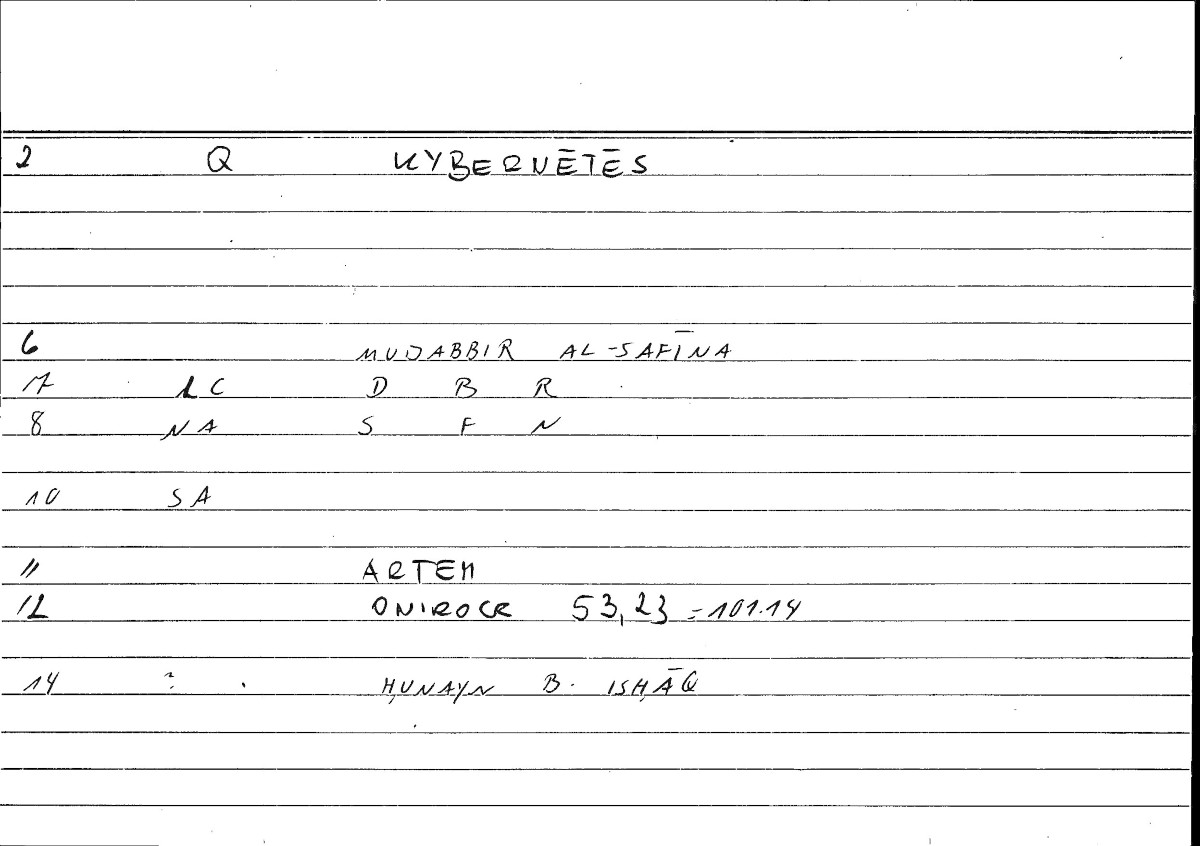 2 Q KYBERNĒTĒS
6 MUDABBIR AL-SAFĪNA
7 LC D B R
8 NA S F N
10 SA
11 ARTEM
12 ONIROCR 53,23 = 101.14
14 ? . ḤUNAYN B. ISḤĀQ